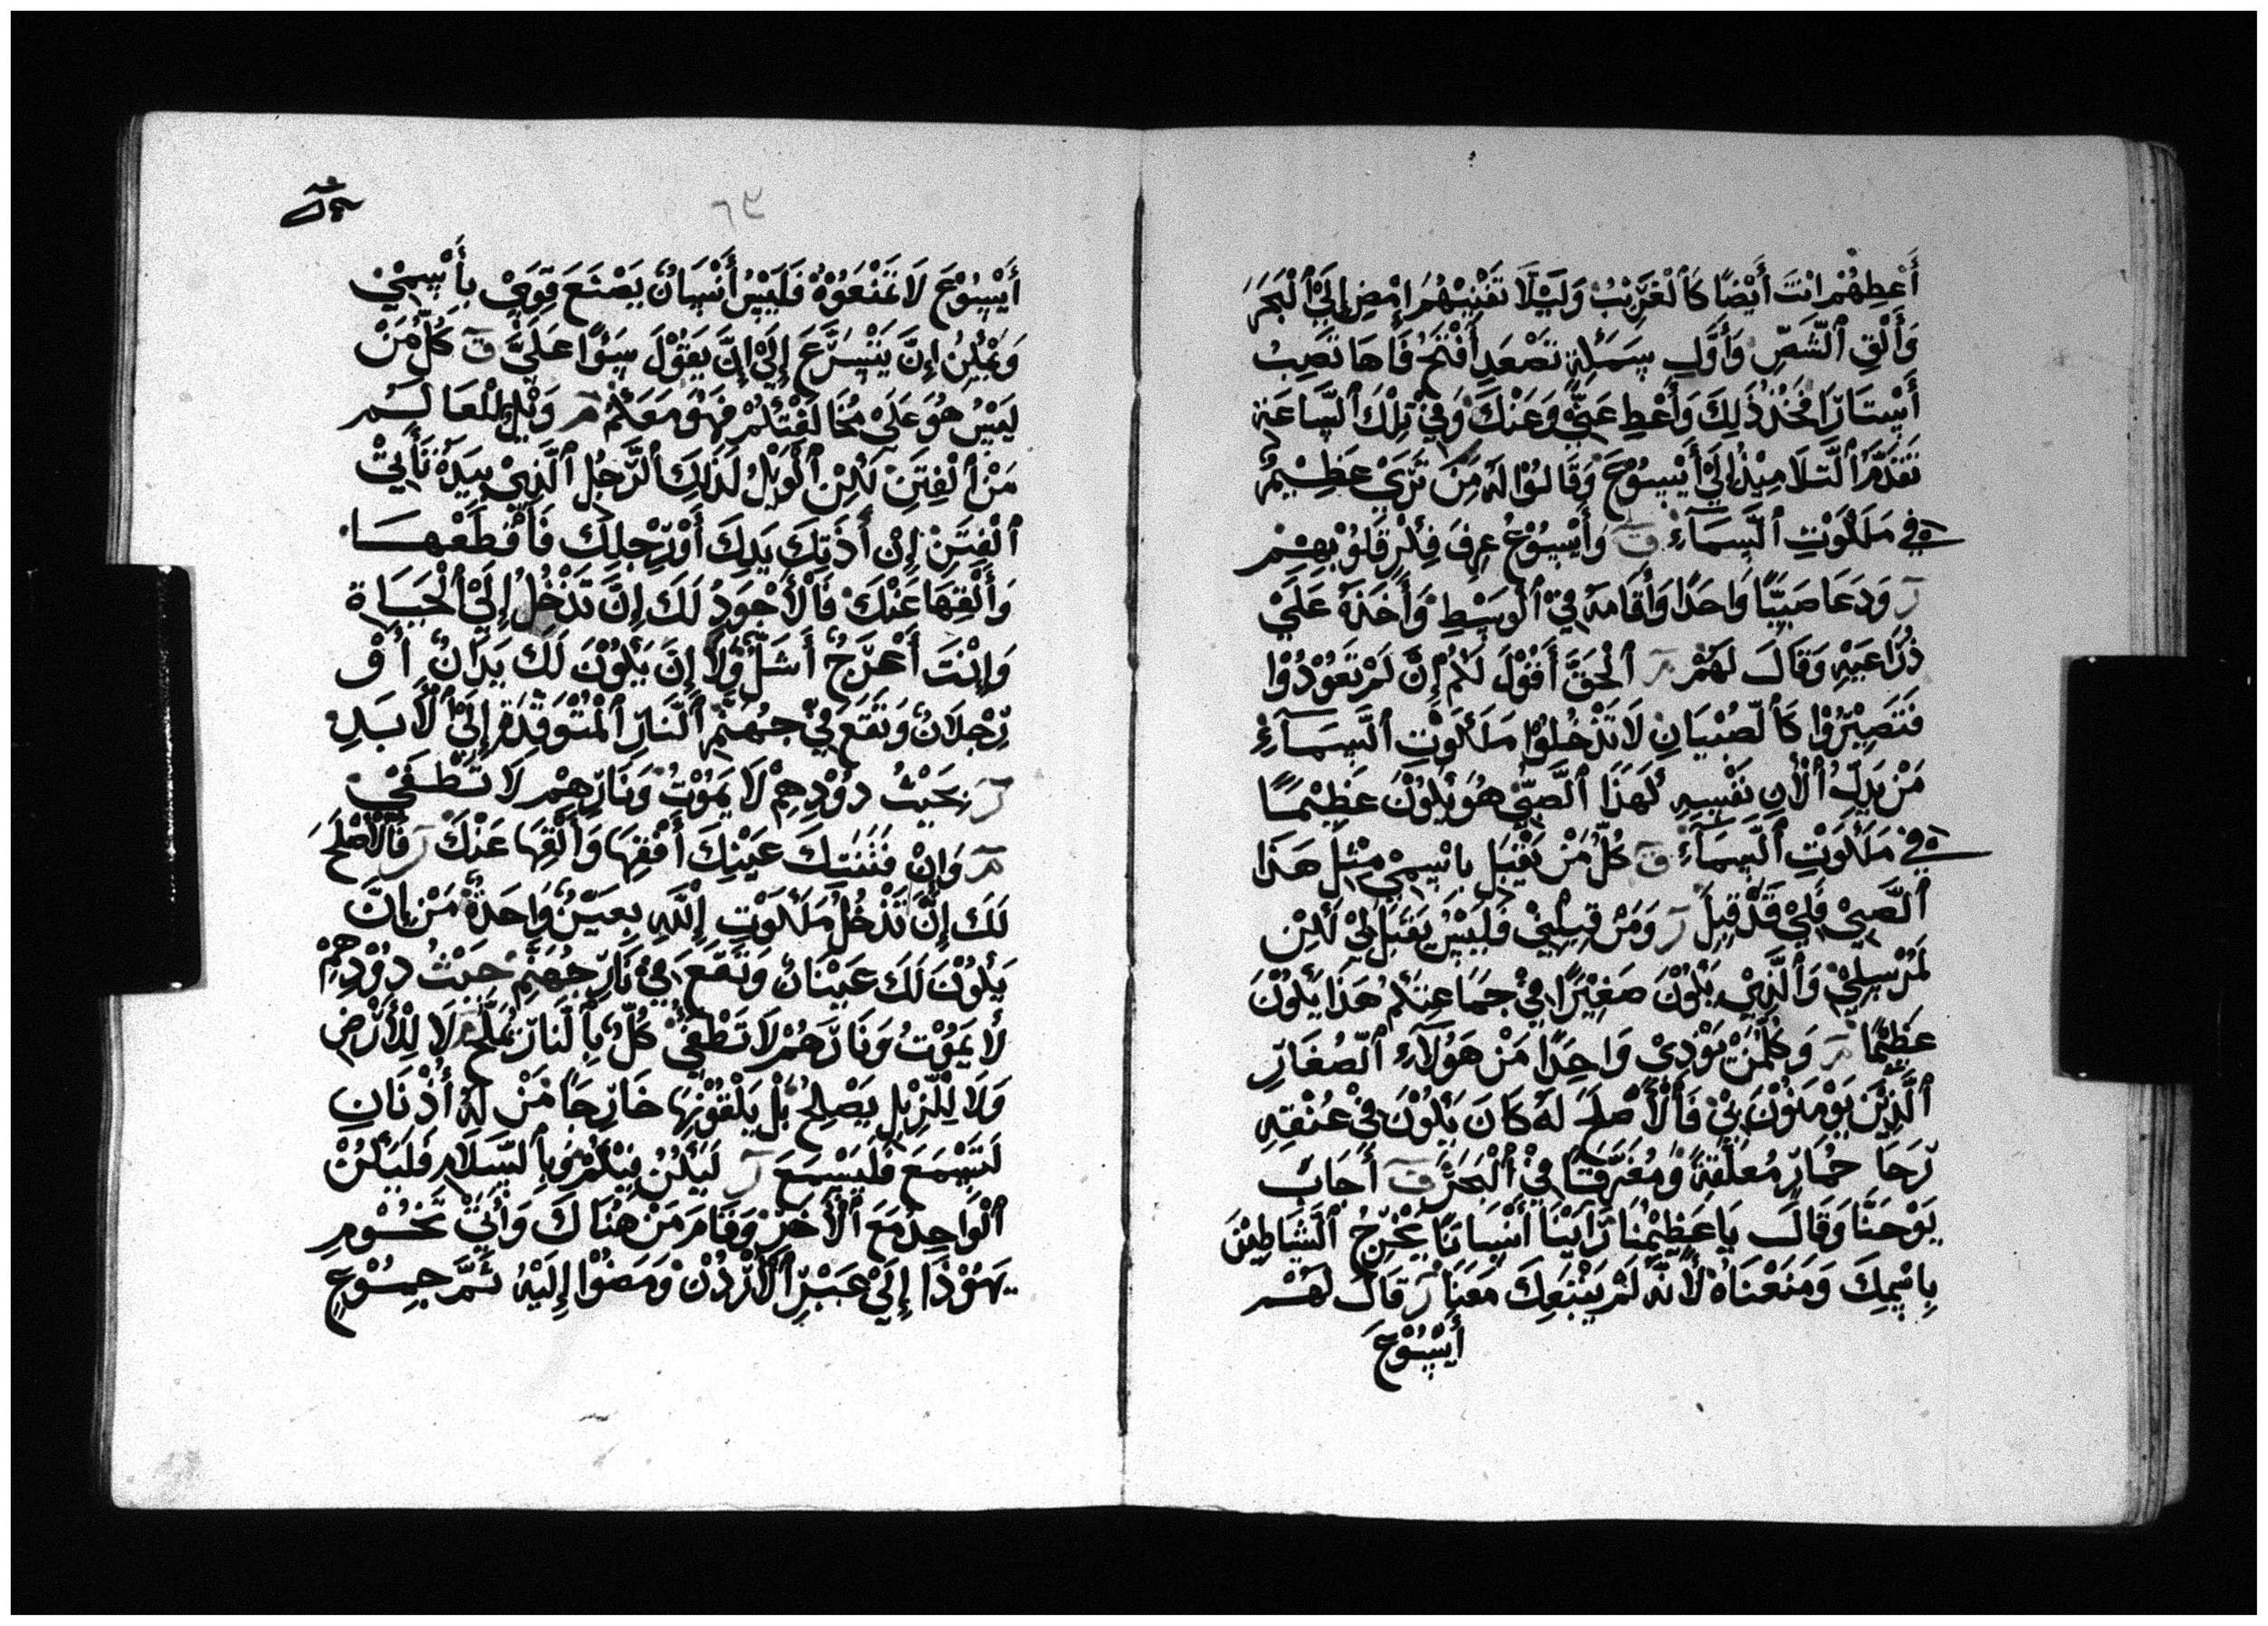 أَعْطِهُمْ انْتَ أَيْضًا كَٱلْغَرِيْبْ وَلَيْلَّا تَغْبِنْهُمْ إِمْضِ إِلَيْ ٱلْبَحَرْ
وَأَلْقِ ٱلشَّصِّ وَأَوَّلِ سِمَكَةٍ تَصْعَدِ أَفْتَحْ فَاهَا تَصِبْ
أَيْسْتَارًا فَخُذْ ذَلِكَ وَأَعْطِ عَنِّيْ وَعَنْكَ وَفِيْ تِلْكَ ٱلسَّاعَةِ
تَقَدَّمَ ٱلتَّلَامِيْذُ إِلَيْ أَيْسُوْعَ وَقَالُوْا لَهُ مَنْ تَرَيْ عَظِيْمٌ
فِي مَلَكُوْتِ ٱلسَّمَآءِ ق وَأَيْسُوْعُ عِرِفَ فِكْرِ قَلُوْبِهِمْ
ر وَدَعَا صَبِيًّا وَاحَدًا وَأَقَامَهُ فِيْ ٱلْوَسْطِ وَأَخَذَهُ عَلَيْ
ذُرَاعَيْهِ وَقَالَ لَهُمْ مر ٱلْحَقَّ أَقُوْلَ لَكُمْ إِنَّ لَمْ تَعُوْدُوْا
فَتَصِيْرُوْا كَٱلصُّبْيَانِ لَا تَدْخُلُوْا مَلَكُوْتِ ٱلسَّمَآءِ
مَنْ يَدِلُّ ٱلْأنِ نَفْسِهِ لَهَذَا ٱلصَّبِيْ هُوَ يَكُوْنَ عَظِيْمًا
فِي مَلَكُوْتِ ٱلسَّمَآءِ ق كُلُّ مَنْ يَقْبَلِ بِاسْمِيْ مِثْلَ هَذَا
ٱلصَّبِيْ فَلِيْ قَدْ قِبِلَ ر وَمَنْ قِبِلْنِيْ فَلَيْسْ يَقْبَلِ لِيْ لَكِنْ
لَمُرْسِلِيْ وَٱلَّذِيْ يَكُوْنَ صَغِيْرًا فِيْ جَمَاعِتَكُمْ هَذَا يَكُوْنَ
عَظِيْمًا مر وَكُلْمَنْ يَوْذِيْ وَاحِدًا مَنْ هَوُلَآءِ ٱلصُّغَارِ
ٱلَّذِيْنَ يَوْمِنُوْنَ بِيْ فَٱلْأَصْلَحَ لَهُ كَانَ يَكُوْنَ فِيْ عُنْقِهِ
رَحَا حْمَارِ مُعَلَّقَةً وَمُغَرَّقًا فِيْ ٱلْبَحَرْ ق أَجَابَ
يَوْحَنَّا وَقَالَ يَا عَظِيْمُنَا رَايَنْا أَنْسَانًا يُخْرِجُ ٱلشَّيَاطِيْنَ
بِاسْمِكَ وَمَنَعْنَاهُ لَأنَّهُ لَمْ يَتْبَعِكَ مَعَنَا ر قَالَ لَهُمْ
أَيْسُوْعَ
٦٩
أَيْسُوْعَ لَا تَمْنَعُوْهُ فَلَيْسْ أَنْسَانٌ يَصْنَعَ قِوِيْ بِأَسْمِيْ
وَيُمْكِنُ إِنَّ يَتْسَرَّعَ إِلَيْ إِنَّ يَقُوْلَ سَوًا عَلَيَّ ق كُلُّ مَنْ
لَيْسْ هُوَ عَلَيْ مُخَالَفْتَكُمْ فَهُوَ مَعَكُمْ مر وَيْلٌ لِلْعَالَمْ
مَنْ ٱلْفِتَنِ لَكِنْ ٱلْوَيْلُ لَذَلِكَ ٱلرَّجُلِ ٱلَّذِيْ بِيَدِهْ تَأتِيْ
ٱلْفِتَنِ إِنْ أَذَتِكَ يَدِكَ أَوْرِجْلِكَ فَأَقْطَعْهَا
وَأَلْقِهَا عَنْكَ فَٱلْأَجْوَدِ لَكَ إِنَّ تَدْخُلُ إِلَيْ ٱلْحَيَاةِ
وَإنْتَ أَعْرَجٌ أَشَلُّ وَلَا إِنَّ يَكُوْنَ لَكَ يَدَانٌ أَوْ
رِجْلَانٌ وَتَقَعَ فِيْ جُهَنَّمِ ٱلنَّارِ ٱلْمُتْوَقِّدَةْ إِلَيْ ٱلْأَبَدِ
ر بحَيْثُ دُوْدِهِمْ لَا يَمُوْتُ وَنَارِهِمْ لَا تَطْفَيْ
مر وَانْ فَتَنَتِكَ عَيْنِكَ أَقْفِهَا وَأَلْقِهَا عَنْكَ ر فَٱلْأَصْلَحَ
لَكَ إِنَّ تَدْخُلُ مَلَكُوْتِ إِللَّهِ بِعَيْنٌ وَاحَدةْ مَنْ إِنَّ
يَكُوْنَ لَكَ عَيْنَانٌ وَتَقَعَ فِيْ نَارِ جُهَنَّمْ حَيْثُ دُوْدِهِمْ
لَا يَمُوْتُ وَنَارَهُمْ لَا تَطْفَيْ كُلٌّ بِٱلْنَارْ يُمَلَّحْ لَا لِلْأَرْضِ
وَلَا لِلْزِبْلِ يَصْلِحْ بَلْ يَلْقُوْنِهَا خَارِجَا مَنْ لَهُ أُذْنَانِ
لَتَسْمَعَ فَلْيَسْمَعَ ر لَيَكُنْ فِيْكُمْ وَبِٱلسَّلَامِ فَلَيَكُنْ
ٱلْوَاحِدْ مَعَ ٱلْأَخَرْ وَقَامَ مَنْ هُنَاكَ وَأَتَيْ تَخُوْمِ
يَهُوْذَا إِلَيْ عَبْرِ ٱلْأَرْدُنْ وَمَضَوْا إِلَيْهْ ثَمَّ جِمُوْعٍ